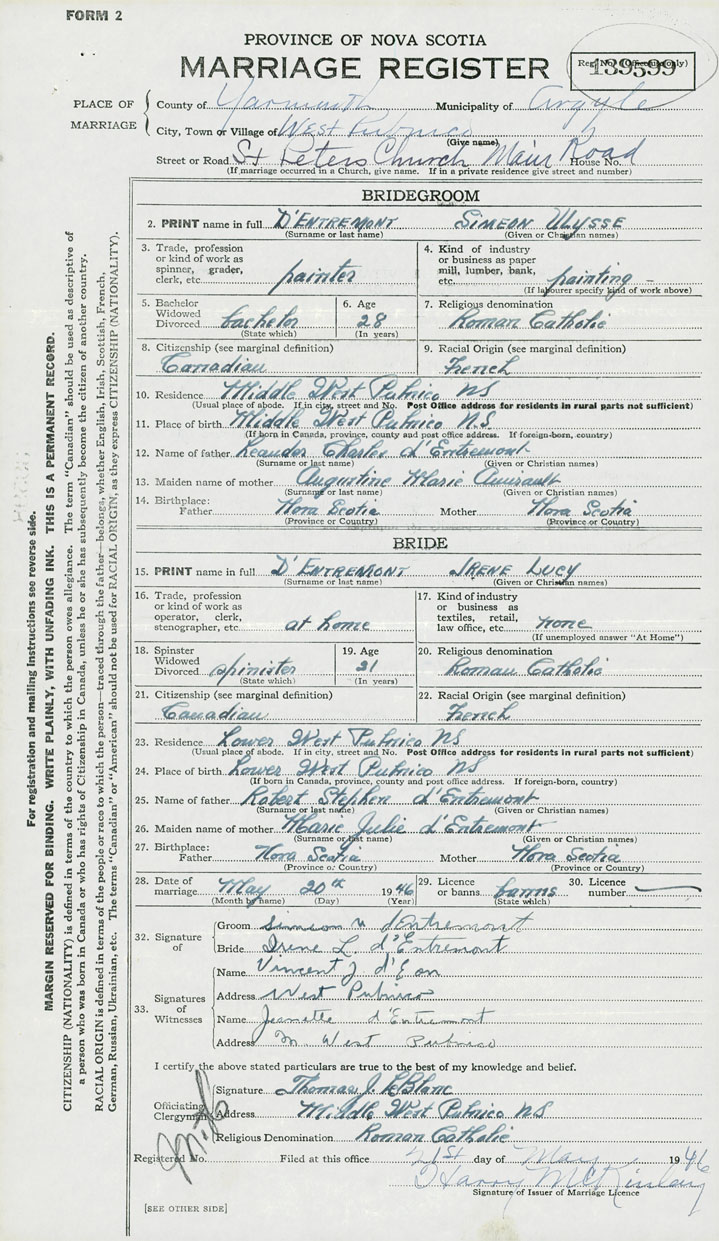 FORM 2
PROVINCE OF NOVA SCOTIA
MARRIAGE REGISTER
Reg. No. (Office use only)
139599
PLACE OF MARRIAGE
County of Yarmouth Municipality of Argyle
City, Town or Village of West Pubnico
(Give name)
Street or Road St Peters Church Main Road House No.
(If marriage occurred in a Church, give name. If in a private residence give street and number)
BRIDEGROOM
2. PRINT name in full D'ENTREMONT SIMEON ULYSSE
(Surname or last name) (Given or Christian names)
3. Trade, profession or kind of work as spinner, grader, clerk, etc. painter
4. Kind of industry or business as paper mill, lumber, bank, etc. painting
(If labourer specify kind of work above)
5. Bachelor Widowed Divorced bachelor
(State which)
6. Age 28
(In years)
7. Religious denomination
Roman Catholic
8. Citizenship (see marginal definition)
Canadian
9. Racial Origin (see marginal definition)
French
10. Residence Middle West Pubnico NS
(Usual place of abode. If in city, street and No. Post Office address for residents in rural parts not sufficient)
11. Place of birth Middle West Pubnico N.S.
(If born in Canada, province, county and post office address. If foreign-born, country)
12. Name of father Leander Charles d'Entremont
(Surname or last name) (Given or Christian names)
13. Maiden name of mother Augustine Marie Amirault
(Surname or last name) (Given or Christian names)
14. Birthplace: Father Nova Scotia Mother Nova Scotia
(Province or Country) (Province or Country)
BRIDE
15. PRINT name in full D'ENTREMONT IRENE LUCY
(Surname or last name) (Given or Christian names)
16. Trade, profession or kind of work as operator, clerk, stenographer, etc. at home
17. Kind of industry or business as textiles, retail, law office, etc. none
(If unemployed answer "At Home")
18. Spinster Widowed Divorced spinister
(State which)
19. Age 21
(In years)
20. Religious denomination
Roman Catholic
21. Citizenship (see marginal definition)
Canadian
22. Racial Origin (see marginal definition)
French
23. Residence Lower West Pubnico NS
(Usual place of abode. If in city, street and No. Post Office address for residents in rural parts not sufficient)
24. Place of birth Lower West Pubnico NS
(If born in Canada, province, county and post office address. If foreign-born, country)
25. Name of father Robert Stephen d'Entremont
(Surname or last name) (Given or Christian names)
26. Maiden name of mother Marie Julie d'Entremont
(Surname or last name) (Given or Christian names)
27. Birthplace: Father Nova Scotia Mother Nova Scotia
(Province or Country) (Province or Country)
28. Date of marriage May 20th 1946
(Month by name) (Day) (Year)
29. Licence or banns banns
(State which)
30. Licence number
32. Signature of
Groom Simeon U d'Entremont
Bride Irene L. d'Entremont
33. Signatures of Witnesses
Name Vincent J d'Eon
Address West Pubnico
Name Jeanette d'Entremont
Address M. West Pubnico
I certify the above stated particulars are true to the best of my knowledge and belief.
Officiating Clergyman
Signature Thomas J. LeBlanc
Address Middle West Pubnico NS
Religious Denomination Roman Catholic
Registered No. Filed at this office 21st day of May 1946
Harry McKinlay
Signature of Issuer of Marriage Licence
[SEE OTHER SIDE]
For registration and mailing instructions see reverse side.
MARGIN RESERVED FOR BINDING. WRITE PLAINLY, WITH UNFADING INK. THIS IS A PERMANENT RECORD.
CITIZENSHIP (NATIONALITY) is defined in terms of the country to which the person owes allegiance. The term "Canadian" should be used as descriptive of
a person who was born in Canada or who has rights of Citizenship in Canada, unless he or she has subsequently become the citizen of another country.
RACIAL ORIGIN is defined in terms of the people or race to which the person—traced through the father—belongs, whether English, Irish, Scottish, French,
German, Russian, Ukrainian, etc. The terms "Canadian" or "American" should not be used for RACIAL ORIGIN, as they express CITIZENSHIP (NATIONALITY).